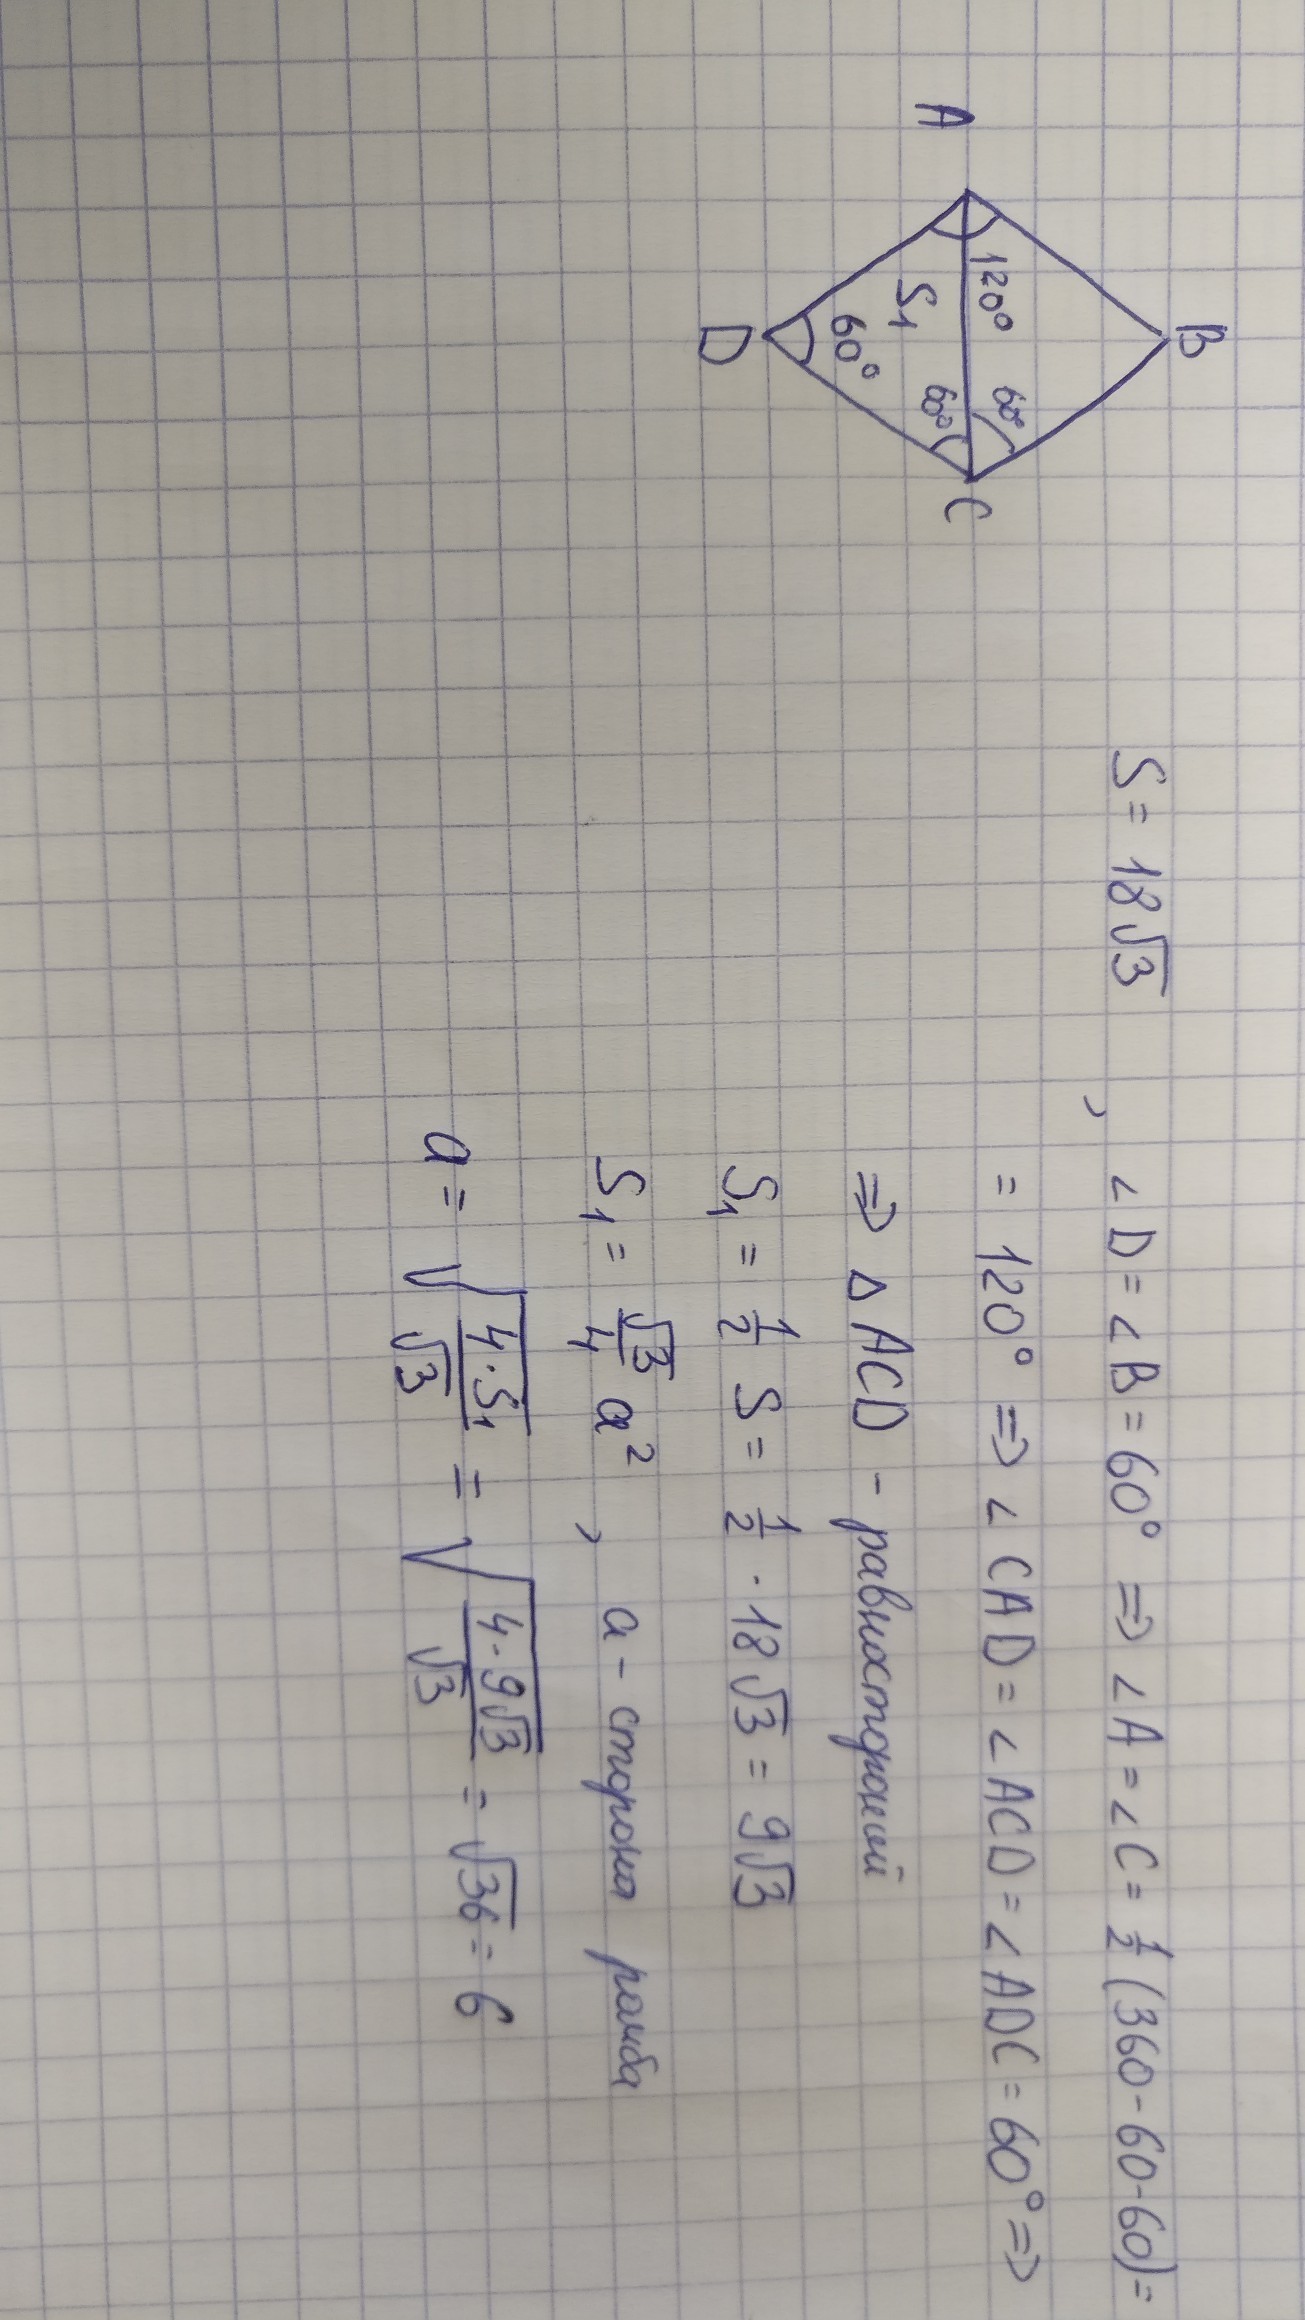 B
A
120°
60°
S₁
60°
60°
C
D
S = 18√3 , ∠D = ∠B = 60° ⇒ ∠A = ∠C = 1/2 (360 - 60 - 60) =
= 120° ⇒ ∠CAD = ∠ACD = ∠ADC = 60° ⇒
⇒ △ ACD - равносторонний
S₁ = 1/2 S = 1/2 · 18√3 = 9√3
S₁ = √3/4 a² , a - сторона ромба
a = √(4·S₁/√3) = √(4·9√3/√3) = √36 = 6